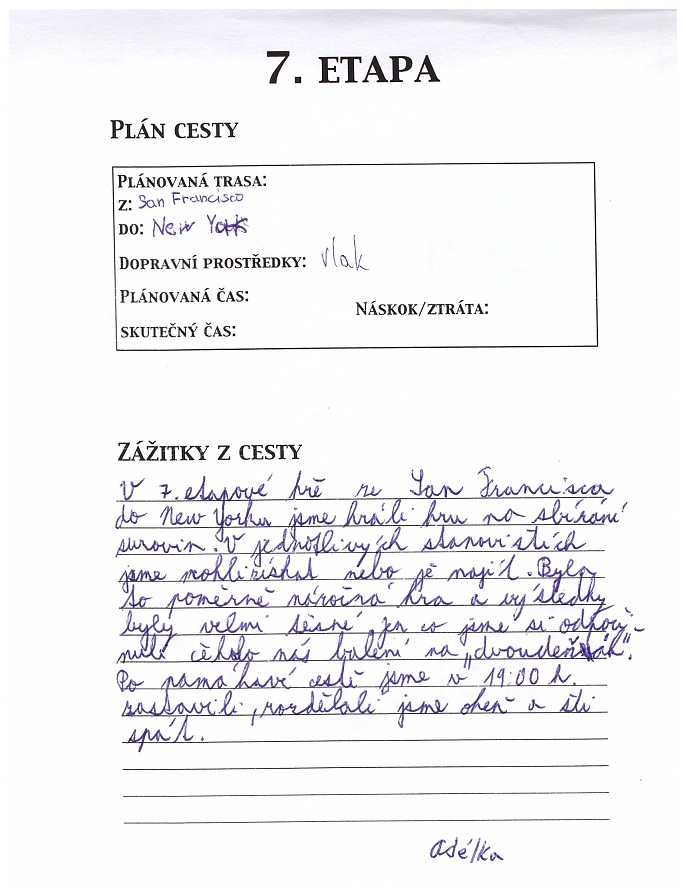 7. ETAPA
PLÁN CESTY
PLÁNOVANÁ TRASA:
Z: San Francisco
DO: New York
DOPRAVNÍ PROSTŘEDKY: vlak
PLÁNOVANÁ ČAS:
NÁSKOK/ZTRÁTA:
SKUTEČNÝ ČAS:
ZÁŽITKY Z CESTY
V 7. etapové hře ze San Francisca
do New Yorku jsme hráli hru na sbírání
surovin. V jednotlivých stanovištích
jsme mohli získat nebo jě najít. Byla
to poměrně náročná hra a výsledky
byly velmi těsné, jen co jsme si odpoči-
nuli čekalo nás balení na „dvoudeňák".
Po namáhavé cestě jsme v 19:00 h.
zastavili, rozdělali jsme oheň a šli
spát.
Adélka